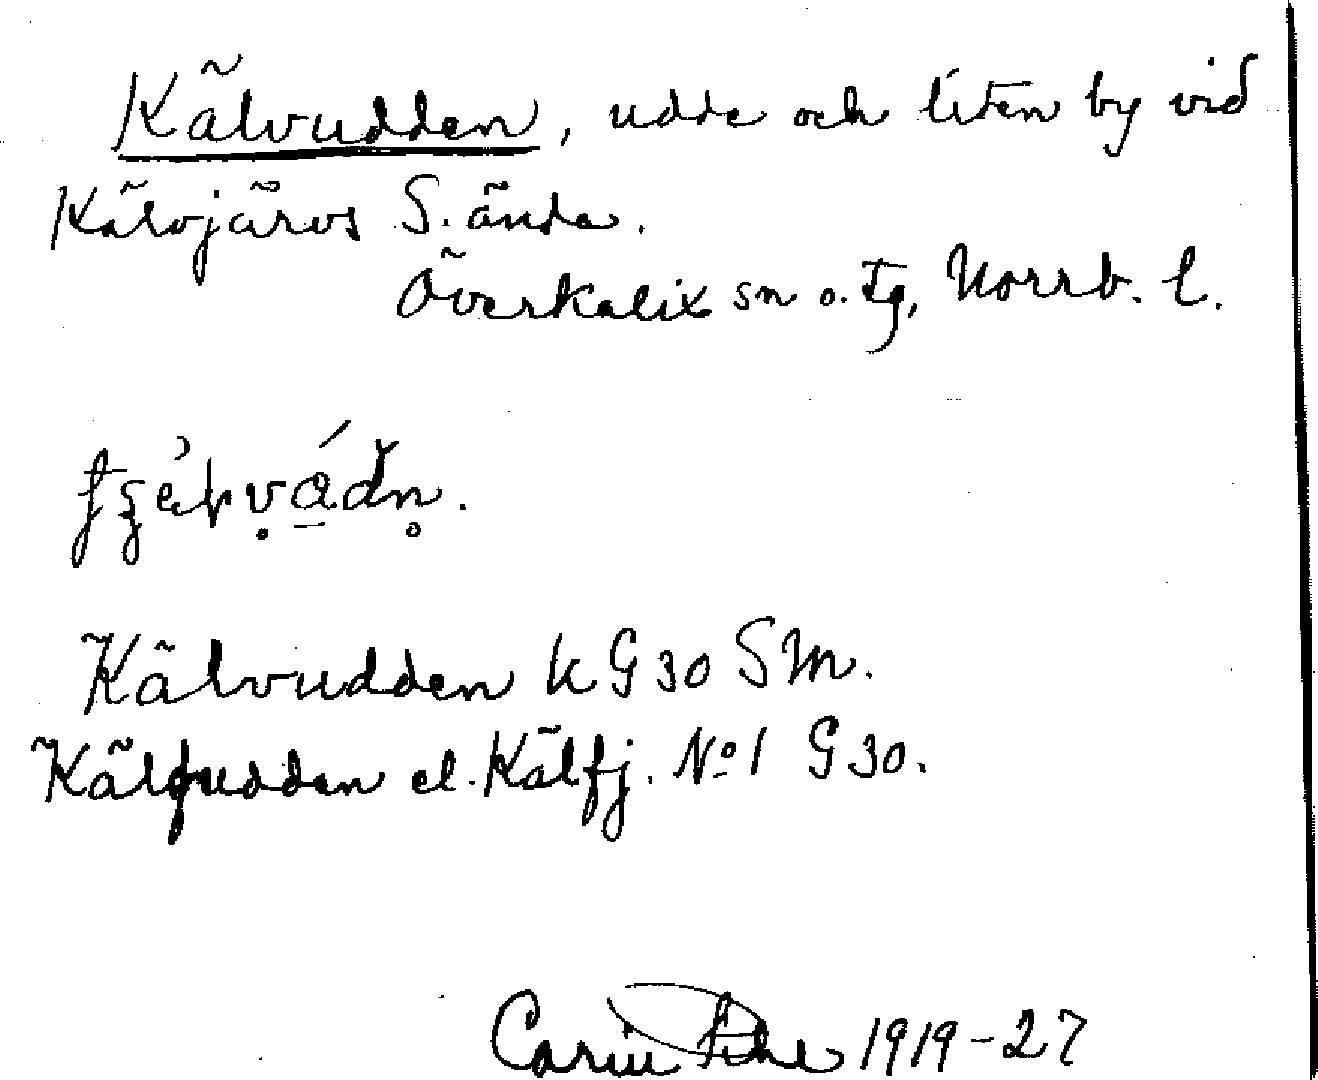 Kälvudden, udde och liten by vid
Kälvjärvs S. ända.
Överkalix sn o. tg, Norrb. l.
Kälvudden k G 30 SM.
Kälfudden el. Kälfj. No 1 G 30.
Carin Pihl 1919-27